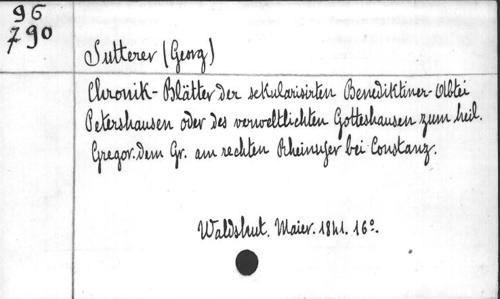 96
790
Sutterer (Georg)
Chronik-Blätter der sekularisirten Benediktiner-Abtei
Petershausen oder des verweltlichten Gotteshausen zum heil.
Gregor. dem Gr. am rechten Rheinufer bei Constanz.
Waldshut. Maier. 1841. 16°.